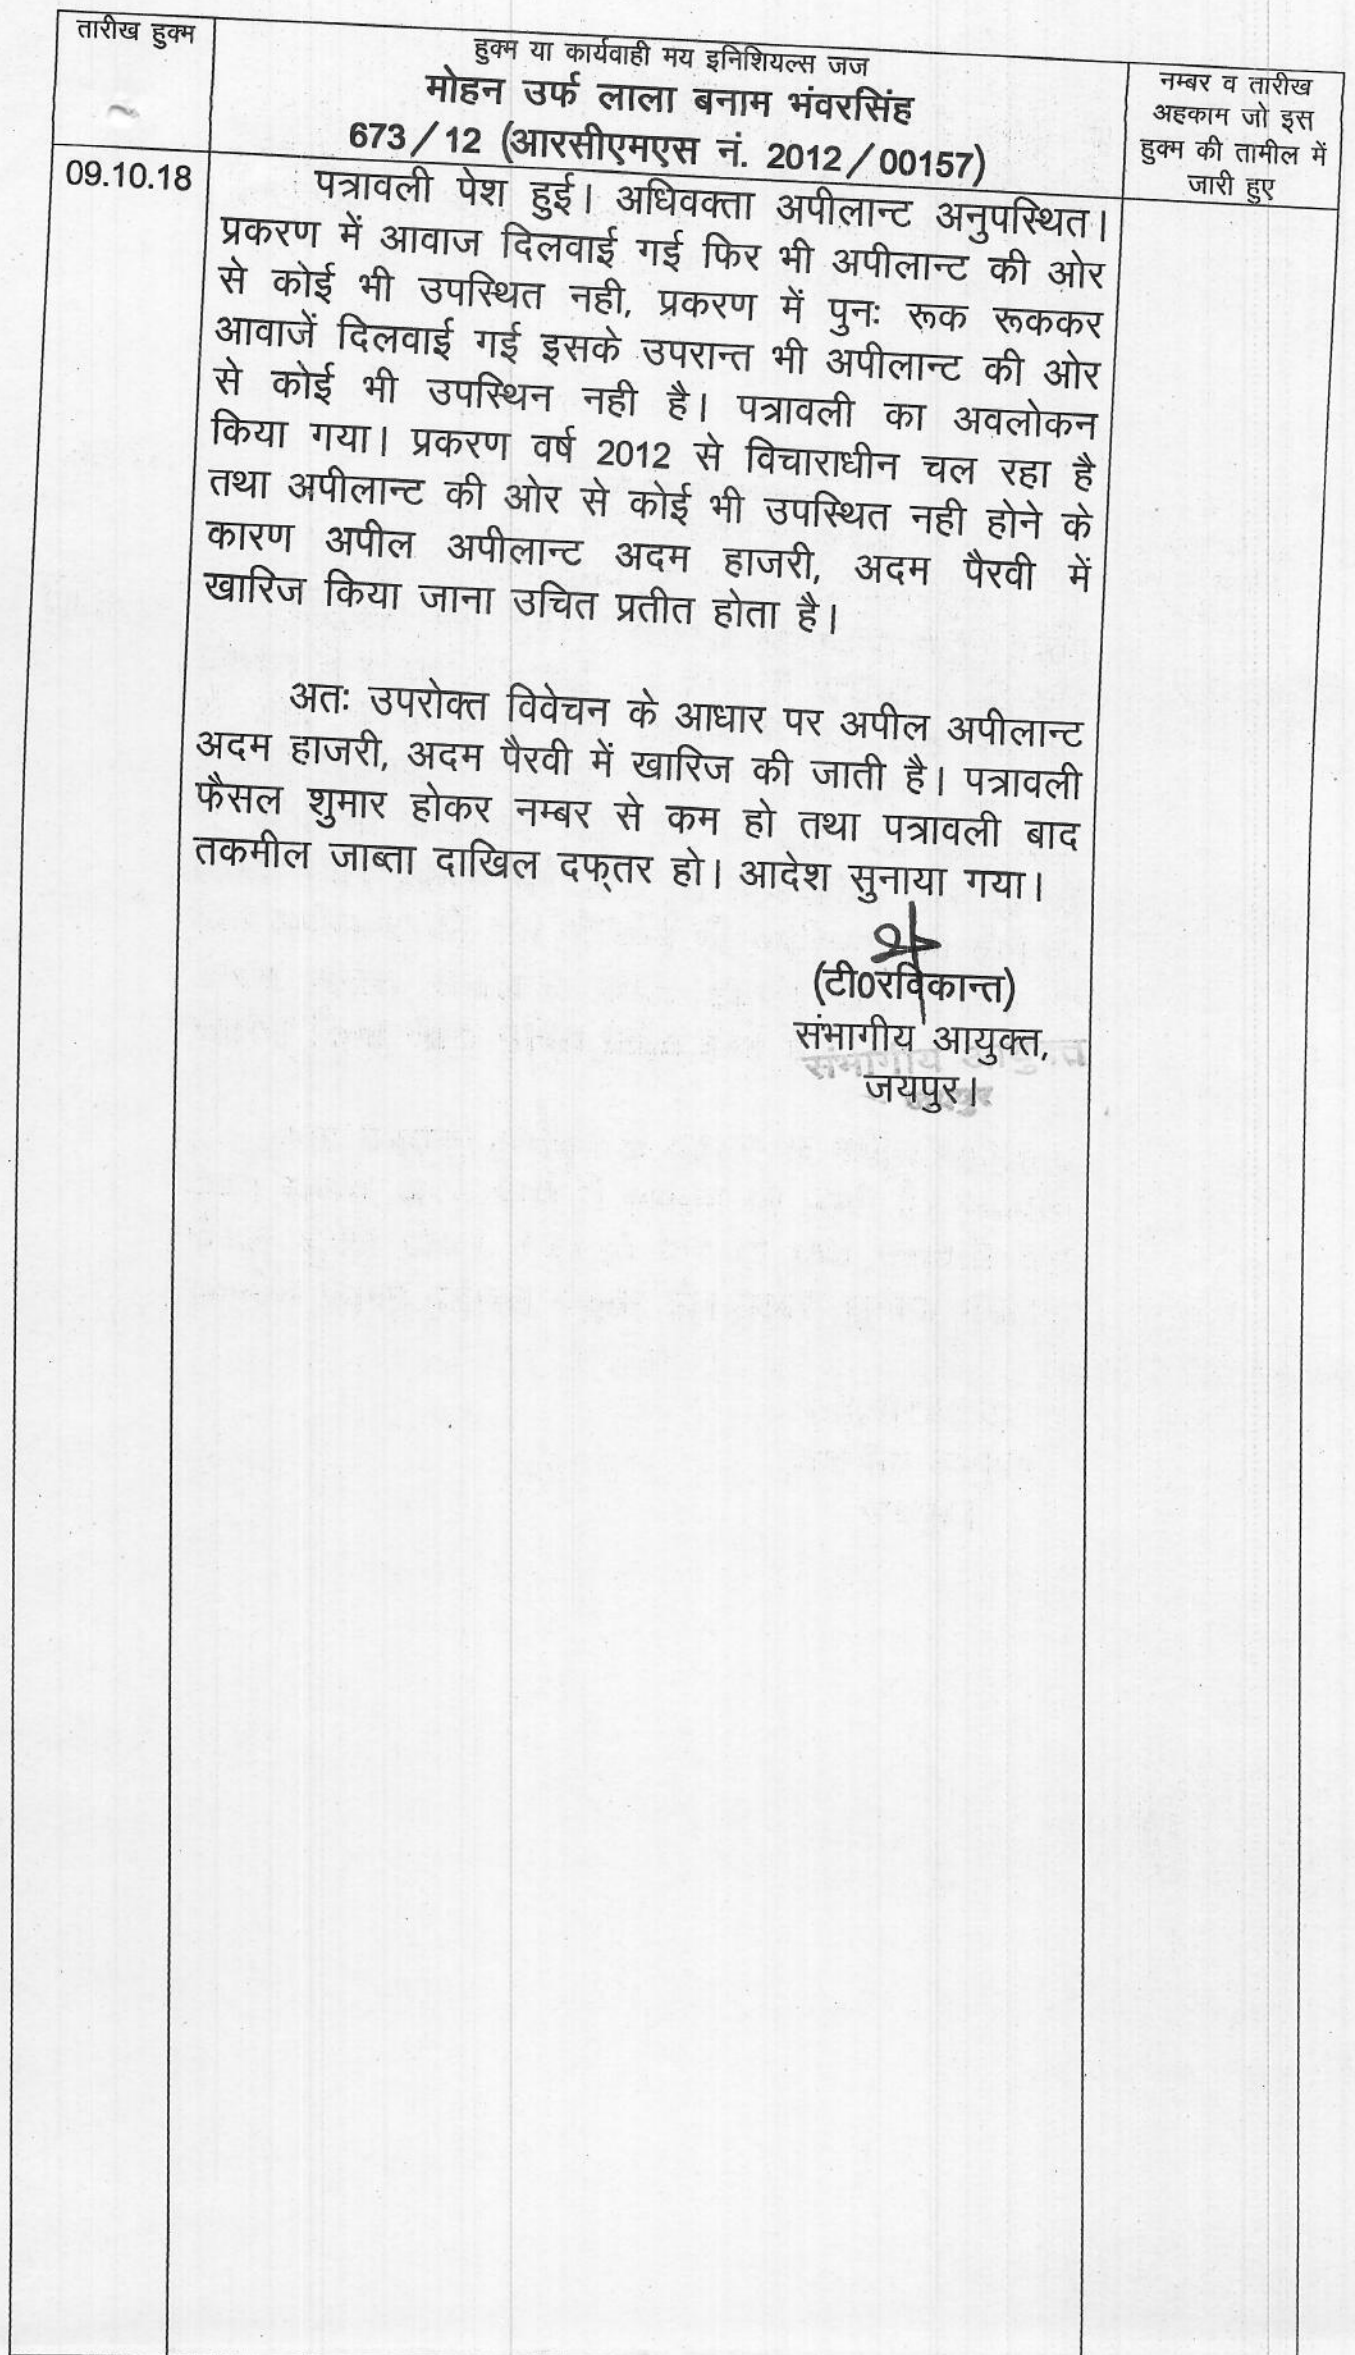 तारीख हुक्म
हुक्म या कार्यवाही मय इनिशियल्स जज
मोहन उर्फ लाला बनाम भंवरसिंह
673/12 (आरसीएमएस नं. 2012/00157)
नम्बर व तारीख
अहकाम जो इस
हुक्म की तामील में
जारी हुए
09.10.18
पत्रावली पेश हुई। अधिवक्ता अपीलान्ट अनुपस्थित।
प्रकरण में आवाज दिलवाई गई फिर भी अपीलान्ट की ओर
से कोई भी उपस्थित नही, प्रकरण में पुनः रूक रूककर
आवाजें दिलवाई गई इसके उपरान्त भी अपीलान्ट की ओर
से कोई भी उपस्थिन नही है। पत्रावली का अवलोकन
किया गया। प्रकरण वर्ष 2012 से विचाराधीन चल रहा है
तथा अपीलान्ट की ओर से कोई भी उपस्थित नही होने के
कारण अपील अपीलान्ट अदम हाजरी, अदम पैरवी में
खारिज किया जाना उचित प्रतीत होता है।
अतः उपरोक्त विवेचन के आधार पर अपील अपीलान्ट
अदम हाजरी, अदम पैरवी में खारिज की जाती है। पत्रावली
फैसल शुमार होकर नम्बर से कम हो तथा पत्रावली बाद
तकमील जाब्ता दाखिल दफ्तर हो। आदेश सुनाया गया।
(टी0रविकान्त)
संभागीय आयुक्त,
संभागीय आयुक्त
जयपुर।